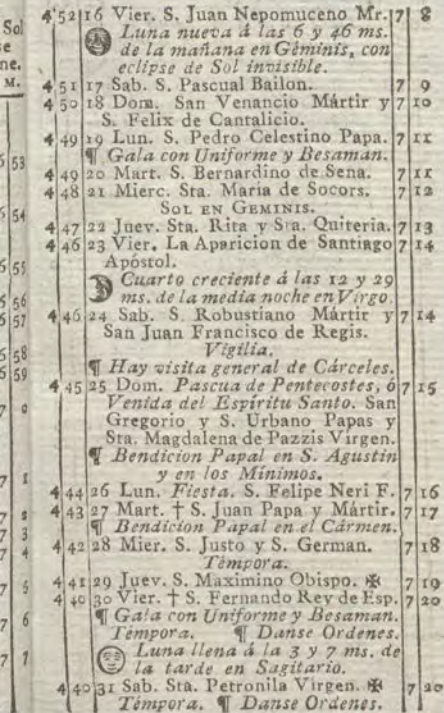 Sol
se
ne.
M.
53
54
55
56
57
58
59
7 0
7 1
7 2
7 3
7 4
7 5
7 6
7 7
4 52 16 Vier. S. Juan Nepomuceno Mr. 7 8
Luna nueva á las 6 y 46 ms.
de la mañana en Géminis, con
eclipse de Sol invisible.
4 51 17 Sab. S. Pascual Bailon. 7 9
4 50 18 Dom. San Venancio Mártir y 7 10
S. Felix de Cantalicio.
4 49 19 Lun. S. Pedro Celestino Papa. 7 11
¶ Gala con Uniforme y Besaman.
4 49 20 Mart. S. Bernardino de Sena. 7 11
4 48 21 Mierc. Sta. Maria de Socors. 7 12
SOL EN GEMINIS.
4 47 22 Juev. Sta. Rita y Sta. Quiteria. 7 13
4 46 23 Vier. La Aparicion de Santiago 7 14
Apóstol.
Cuarto creciente á las 12 y 29
ms. de la media noche en Virgo.
4 46 24 Sab. S. Robustiano Mártir y 7 14
San Juan Francisco de Regis.
Vigilia.
¶ Hay visita general de Cárceles.
4 45 25 Dom. Pascua de Pentecostes, ó 7 15
Venida del Espíritu Santo. San
Gregorio y S. Urbano Papas y
Sta. Magdalena de Pazzis Virgen.
¶ Bendicion Papal en S. Agustin
y en los Mínimos.
4 44 26 Lun. Fiesta. S. Felipe Neri F. 7 16
4 43 27 Mart. † S. Juan Papa y Mártir. 7 17
¶ Bendicion Papal en el Cármen.
4 42 28 Mier. S. Justo y S. German. 7 18
Témpora.
4 41 29 Juev. S. Maximino Obispo. ✠ 7 19
4 40 30 Vier. † S. Fernando Rey de Esp. 7 20
¶ Gala con Uniforme y Besaman.
Témpora. ¶ Danse Ordenes.
Luna llena á la 3 y 7 ms. de
la tarde en Sagitario.
4 40 31 Sab. Sta. Petronila Virgen. ✠ 7 20
Témpora. ¶ Danse Ordenes.